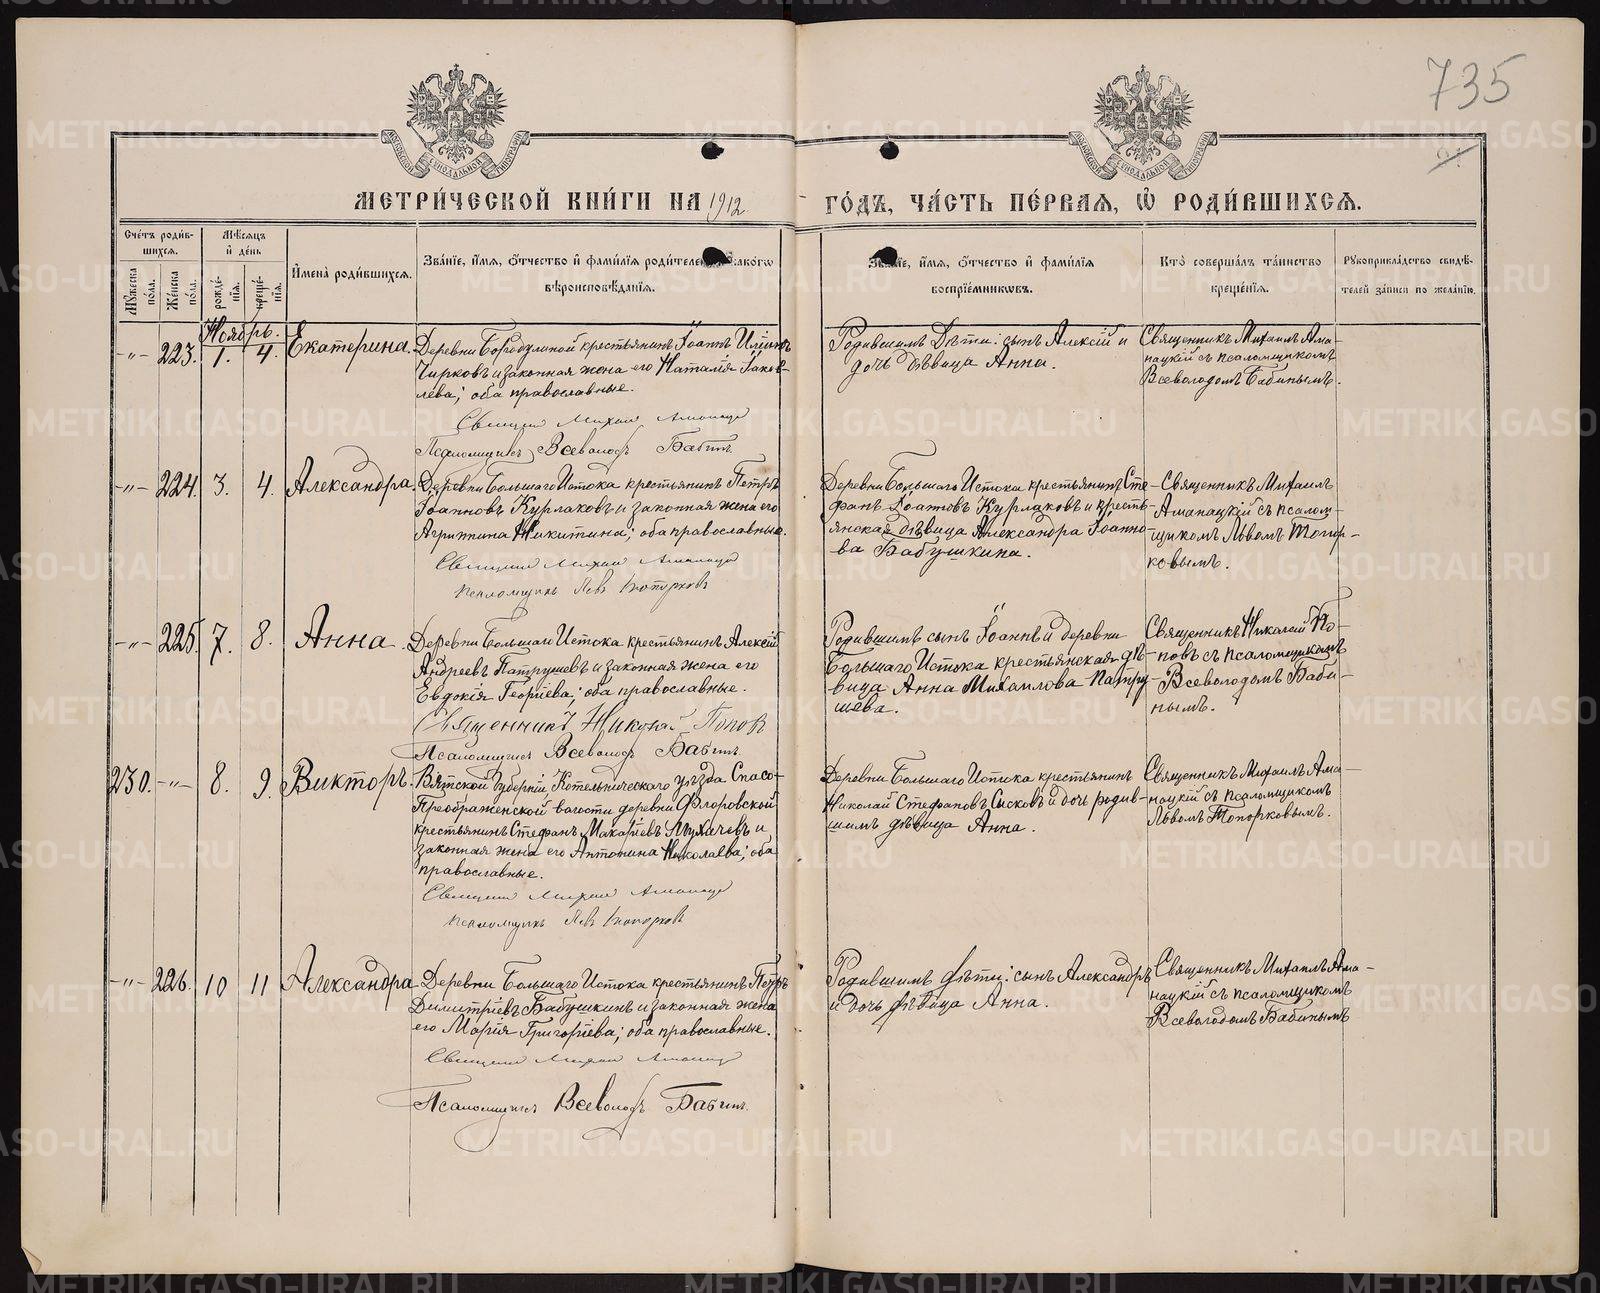 735
МЕТРИ́ЧЕСКОЙ КНИ́ГИ НА 1912 ГО́ДЪ, ЧА́СТЬ ПЕ́РВАЯ, Ѡ РОДИ́ВШИХСЯ.
Счетъ роди́вшихся.
Мѹжеска пола.
Же́нска по́ла.
Мѣсяцъ и де́нь
рожде́нія.
креще́нія.
Имена̀ роди́вшихся.
Зва́ніе, и́мя, о́тчество и фами́лія роди́телей, и како́гѡ
вѣроисповѣ́данія.
Зва́ніе, и́мя, о́тчество и фами́лія
воспріе́мникѡвъ.
Кто̀ соверша́лъ та́инство
креще́нія.
Рѹкоприкла́дство свидѣ́-
телей за́писи по жела́нію.
Ноябрь.
-"- 223. 1. 4. Екатерина.
Деревни Бородулиной крестьянинъ Іоаннъ Ильинъ
Чирковъ и законная жена его Наталія Іаков-
лева; оба православные.
Священ Михаил Аманацк
Псаломщикъ Всеволодъ Бабинъ
Родившимъ дѣти: сынъ Алексій и
дочь дѣвица Анна.
Священникъ Михаилъ Ама-
нацкій съ псаломщикомъ
Всеволодомъ Бабинымъ.
-"- 224. 3. 4. Александра.
Деревни Большаго Истока крестьянинъ Петръ
Іоанновъ Курлаковъ и законная жена его
Агриппина Никитина; оба православные.
Священ Михаил Аманацк
псаломщикъ Левъ Топорковъ
Деревни Большаго Истока крестьянинъ Сте-
фанъ Іоанновъ Курлаковъ и кресть-
янская дѣвица Александра Іоанно-
ва Бабушкина.
Священникъ Михаилъ
Аманацкій съ псалом-
щикомъ Львомъ Топор-
ковымъ.
-"- 225. 7. 8. Анна.
Деревни Большаго Истока крестьянинъ Алексій
Андреевъ Патрушевъ и законная жена его
Евдокія Георгіева; оба православные.
Священникъ Николай Попов
Псаломщикъ Всеволодъ Бабинъ.
Родившимъ сынъ Іоаннъ и деревни
Большаго Истока крестьянская дѣ-
вица Анна Михаилова Патру-
шева.
Священникъ Николай По-
повъ съ псаломщикомъ
Всеволодомъ Баби-
нымъ.
230. -"- 8. 9. Викторъ.
Вятской Губерніи, Котельническаго уѣзда Спасо-
Преображенской волости деревни Ѳедоровской
крестьянинъ Стефанъ Макаріевъ и
законная жена его Антонина Николаева; оба
православные.
Священ Михаил Аманацк
псаломщикъ Левъ Топорковъ
Деревни Большаго Истока крестьянинъ
Николай Стефановъ Сысковъ и дочь родив-
шимъ дѣвица Анна.
Священникъ Михаилъ Ама-
нацкій съ псаломщикомъ
Львомъ Топорковымъ.
-"- 226. 10 11 Александра
Деревни Большаго Истока крестьянинъ Петръ
Димитріевъ Бабушкинъ и законная жена
его Марія Григоріева; оба православные.
Священ Михаил Аманац
Псаломщикъ Всеволодъ Бабинъ.
Родившимъ дѣти: сынъ Александръ
и дочь дѣвица Анна.
Священникъ Михаилъ Ама-
нацкій съ псаломщикомъ
Всеволодомъ Бабинымъ
METRIKI.GASO-URAL.RU